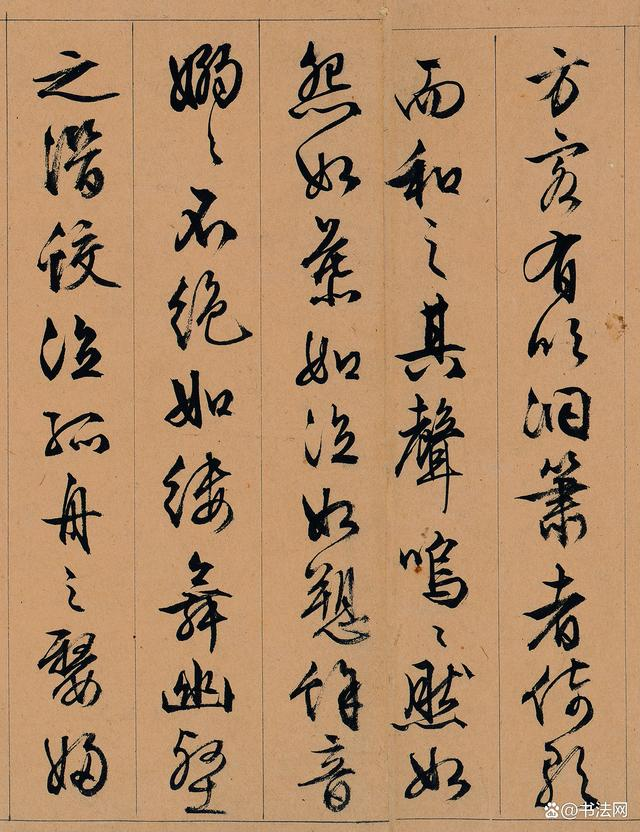 方客有吹洞簫者倚歌
而和之其聲嗚〻然如
怨如慕如泣如愬餘音
嫋〻不絕如縷舞幽壑
之潛蛟泣孤舟之嫠婦
@书法网